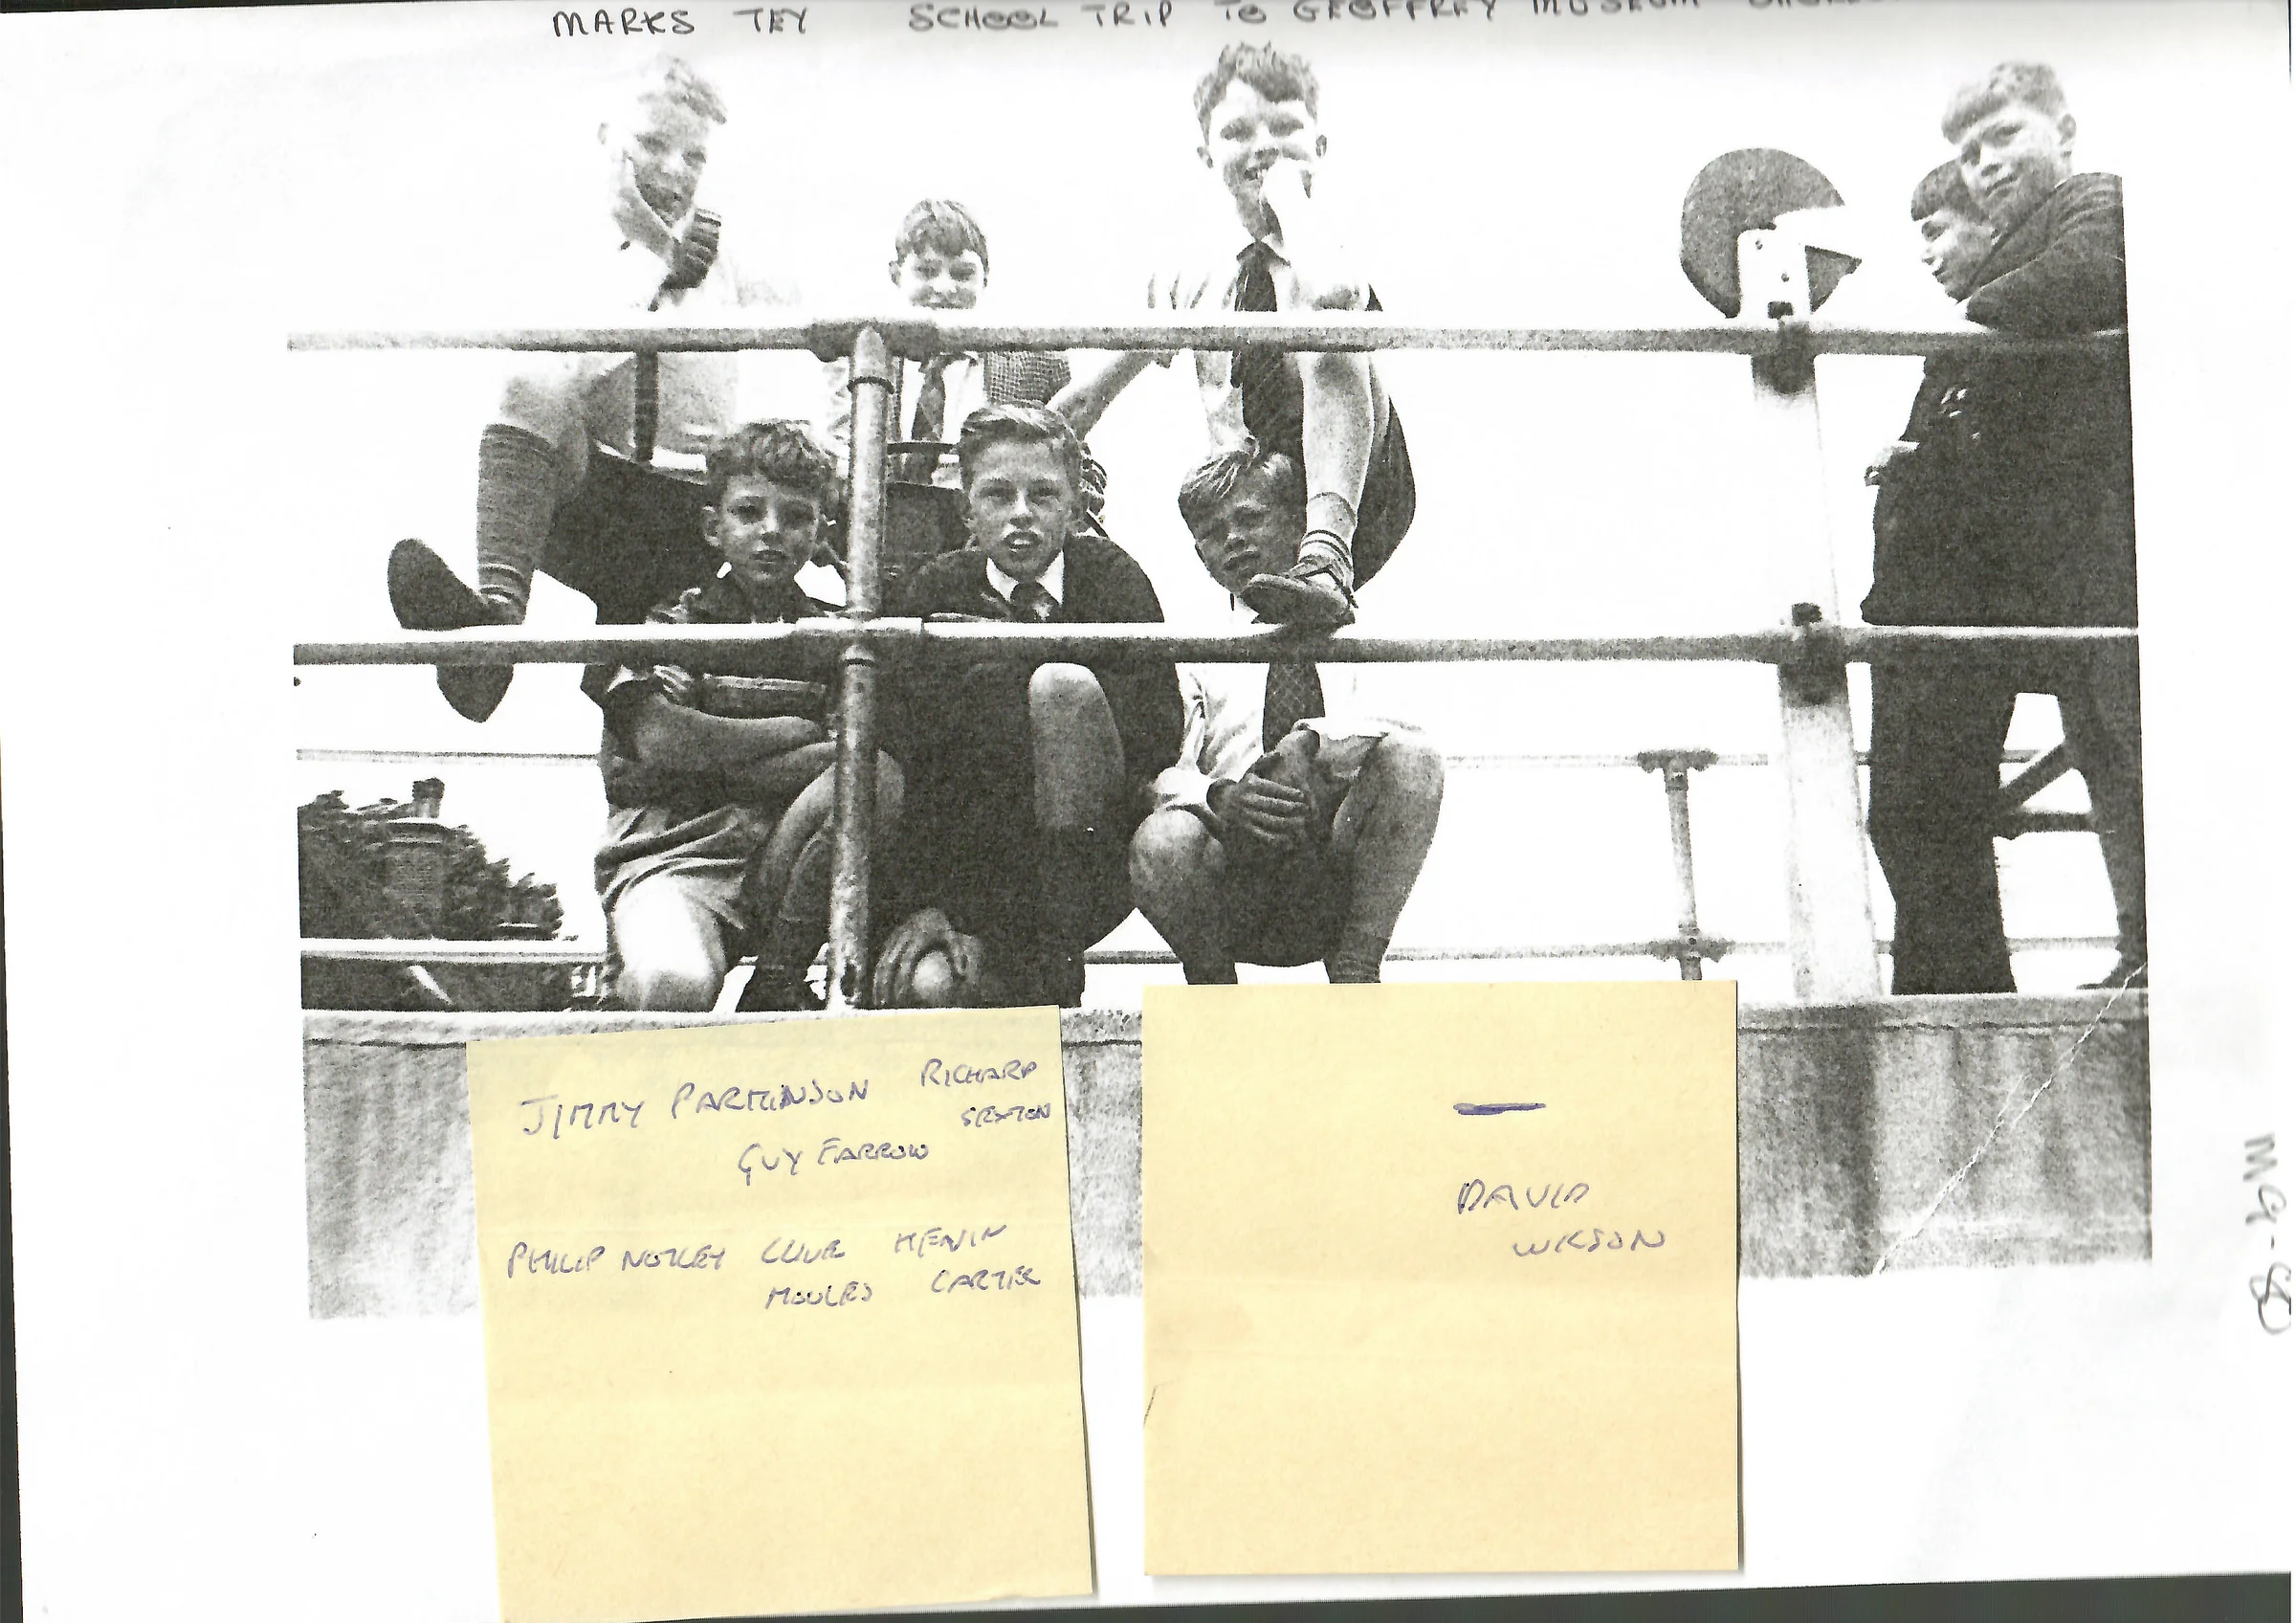 MARKS TEY SCHOOL TRIP TO GEOFFREY MUSEUM
JIMMY PARKINSON RICHARD
SEXTON
GUY FARROW
PHILIP NOTLEY CLIVE KEVIN
MOULES CARTER
DAVID
WILSON